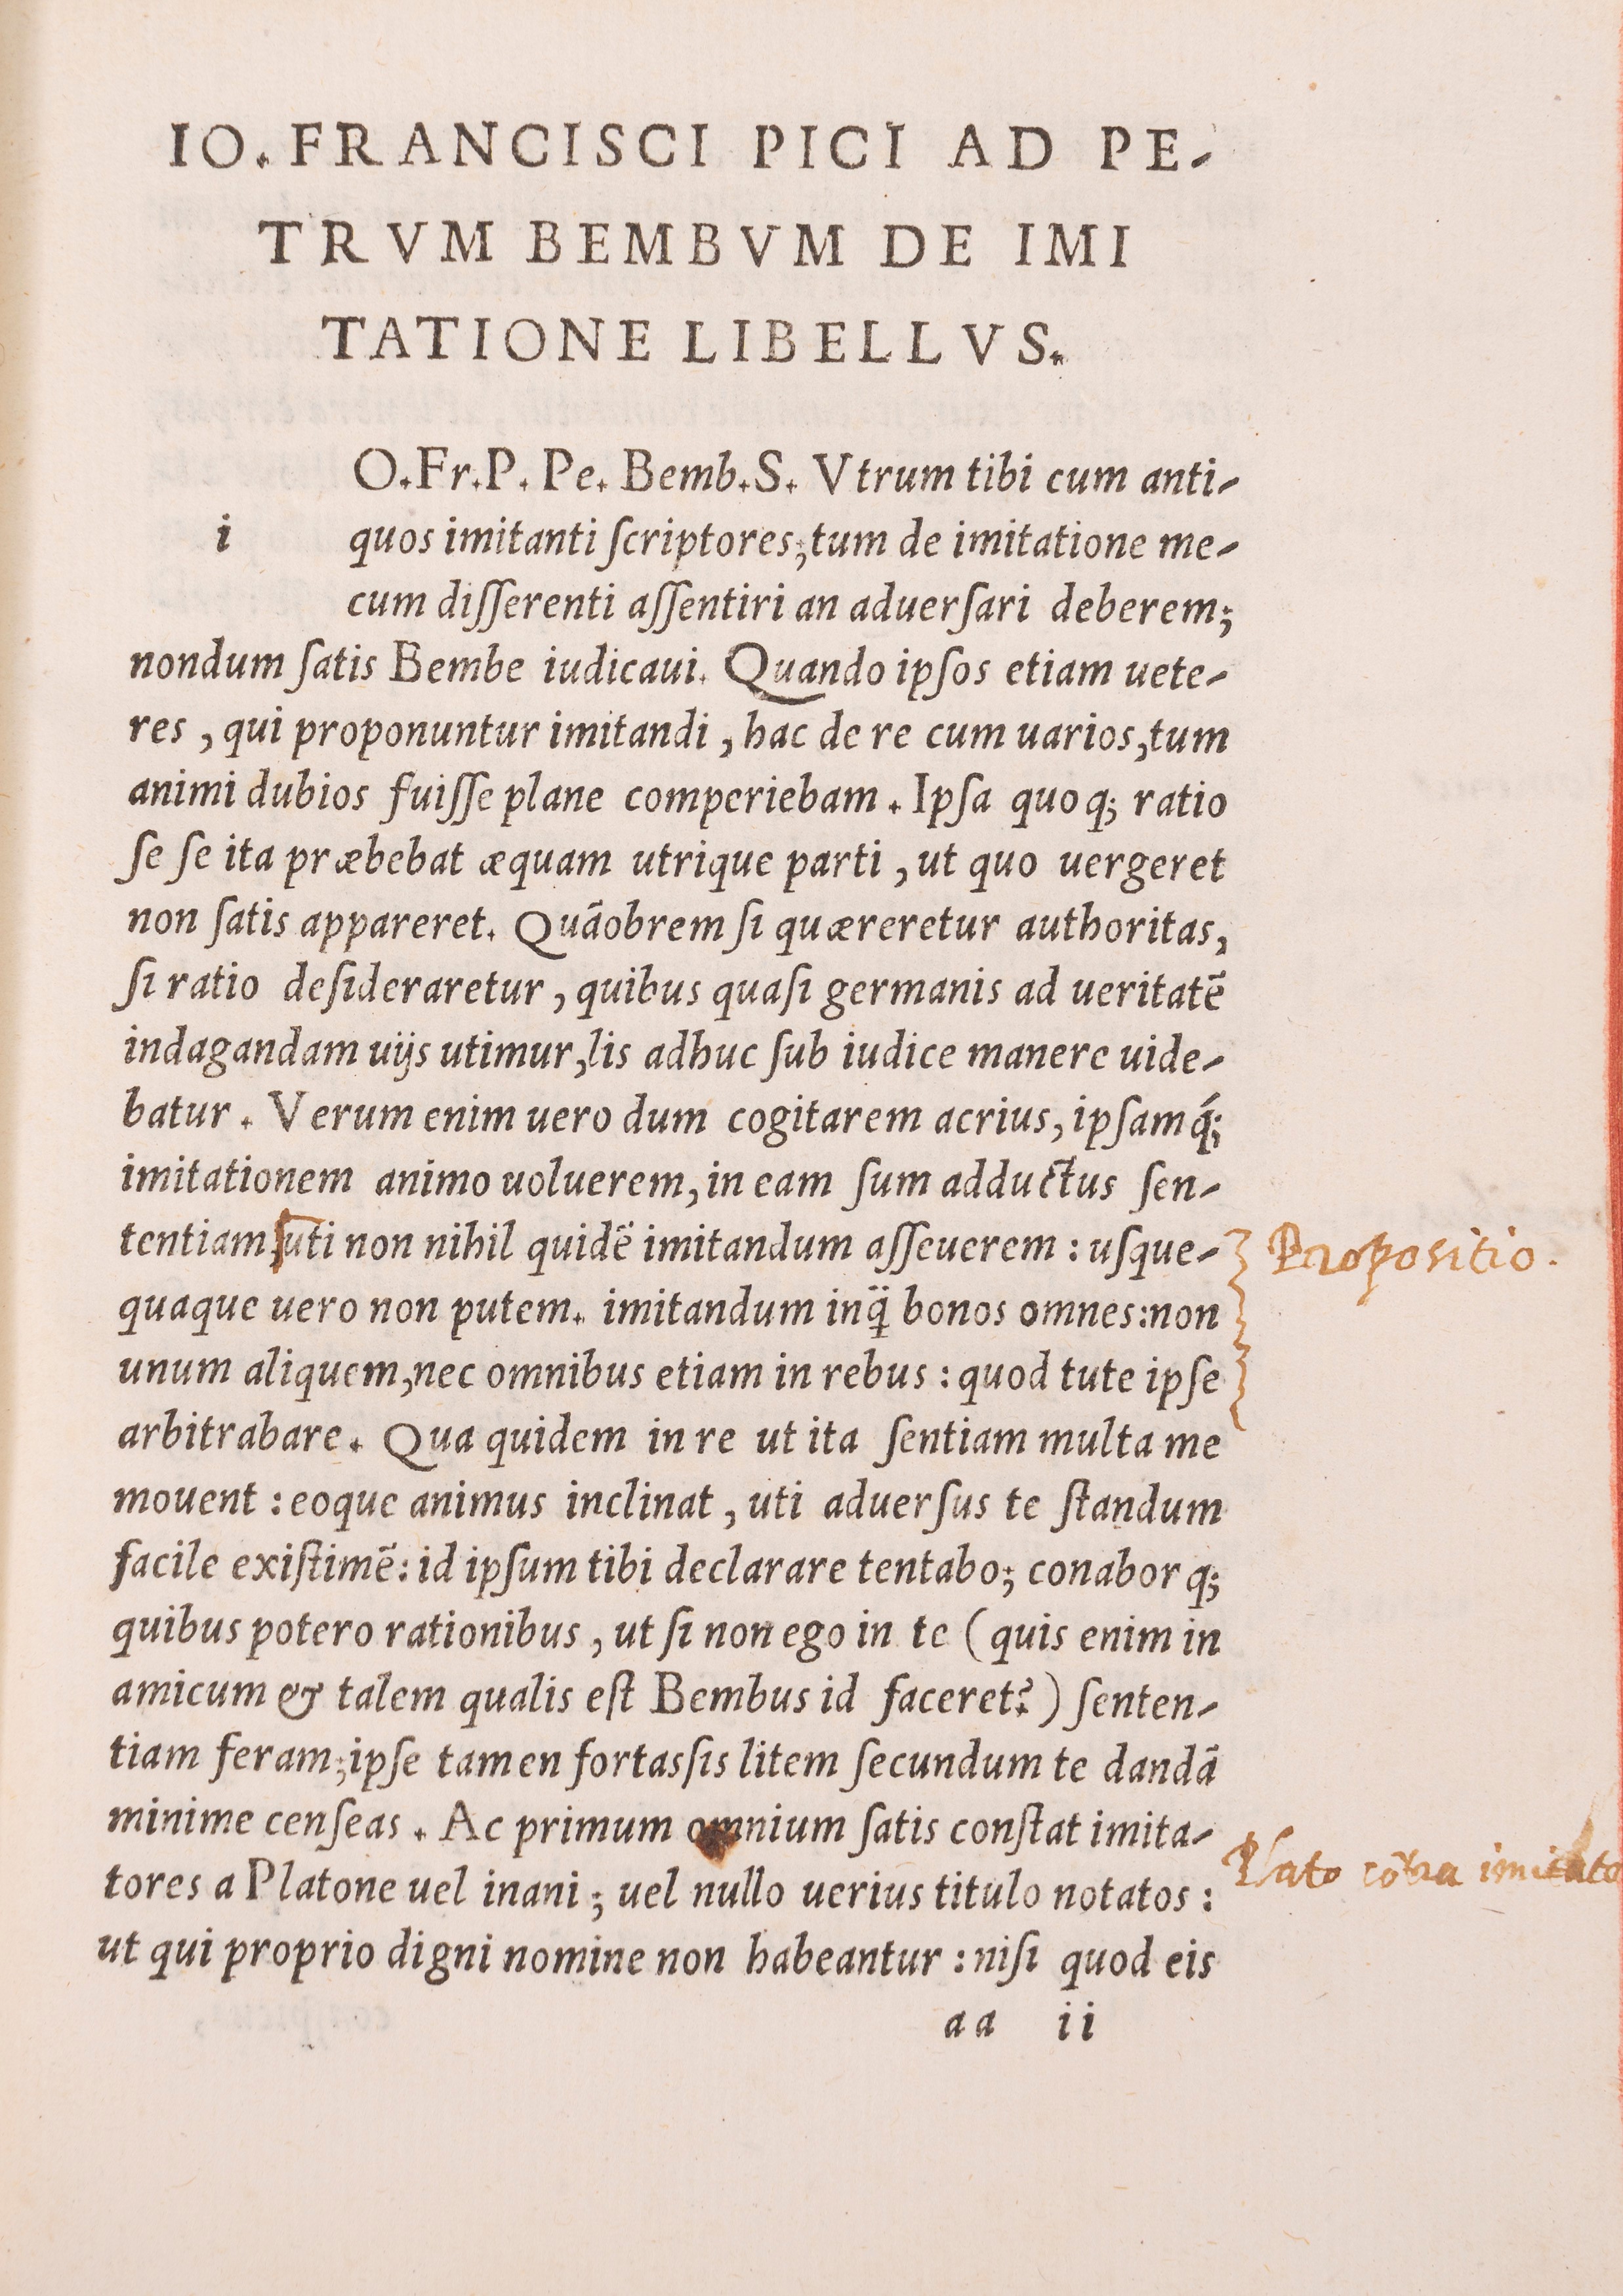 IO. FRANCISCI PICI AD PE-
TRVM BEMBVM DE IMI
TATIONE LIBELLVS.
O. Fr. P. Pe. Bemb. S. Vtrum tibi cum anti-
i quos imitanti ſcriptores; tum de imitatione me-
cum diſſerenti aſſentiri an aduerſari deberem;
nondum ſatis Bembe iudicaui. Quando ipſos etiam uete-
res, qui proponuntur imitandi, hac de re cum uarios, tum
animi dubios fuiſſe plane comperiebam. Ipſa quoq; ratio
ſe ſe ita præbebat æquam utrique parti, ut quo uergeret
non ſatis appareret. Quãobrem ſi quæreretur authoritas,
ſi ratio deſideraretur, quibus quaſi germanis ad ueritatẽ
indagandam uijs utimur, lis adhuc ſub iudice manere uide-
batur. Verum enim uero dum cogitarem acrius, ipſamq́;
imitationem animo uoluerem, in eam ſum adductus ſen-
tentiam, uti non nihil quidẽ imitandum aſſeuerem: uſque-
Propositio.
quaque uero non putem. imitandum inq̈ bonos omnes: non
unum aliquem, nec omnibus etiam in rebus: quod tute ipſe
arbitrabare. Qua quidem in re ut ita ſentiam multa me
mouent: eoque animus inclinat, uti aduerſus te ſtandum
facile exiſtimẽ: id ipſum tibi declarare tentabo; conaborq;
quibus potero rationibus, ut ſi non ego in te (quis enim in
amicum & talem qualis eſt Bembus id faceret?) ſenten-
tiam feram; ipſe tamen fortaſsis litem ſecundum te dandã
minime cenſeas. Ac primum omnium ſatis conſtat imita-
tores a Platone uel inani; uel nullo uerius titulo notatos:
Plato cõtra
ut qui proprio digni nomine non habeantur: niſi quod eis
aa ii